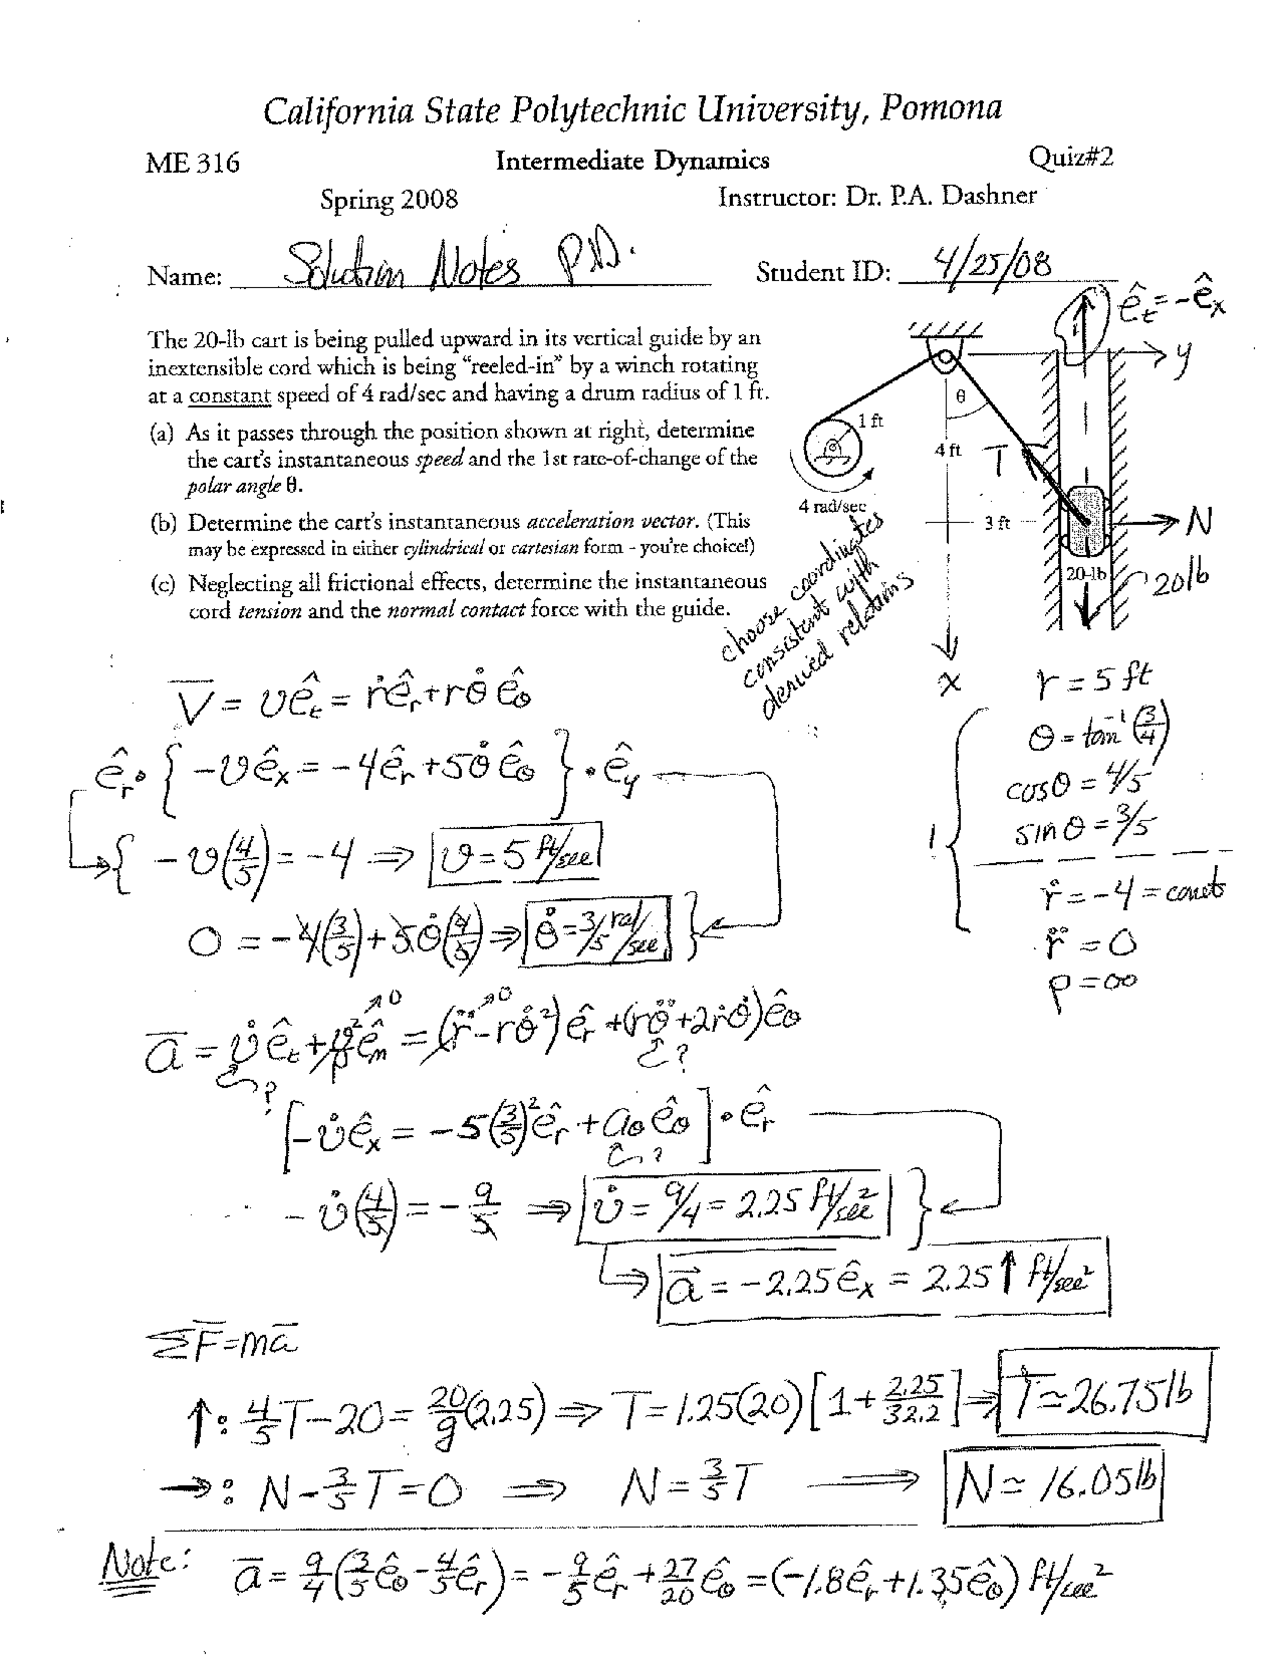 California State Polytechnic University, Pomona
ME 316 Intermediate Dynamics Quiz#2
Spring 2008 Instructor: Dr. P.A. Dashner
Name: Solution Notes P.D. Student ID: 4/25/08
The 20-lb cart is being pulled upward in its vertical guide by an
inextensible cord which is being "reeled-in" by a winch rotating
at a constant speed of 4 rad/sec and having a drum radius of 1 ft.
(a) As it passes through the position shown at right, determine
the cart's instantaneous speed and the 1st rate-of-change of the
polar angle θ.
(b) Determine the cart's instantaneous acceleration vector. (This
may be expressed in either cylindrical or cartesian form - you're choice!)
(c) Neglecting all frictional effects, determine the instantaneous
cord tension and the normal contact force with the guide.
ê_t = -ê_x
y
θ
1 ft
4 ft
T
4 rad/sec
3 ft
N
20-lb
20lb
x
choose coordinates
consistent with
derived relations
r = 5 ft
θ = tan⁻¹(3/4)
cosθ = 4/5
sinθ = 3/5
1
ṙ = -4 = const
r̈ = 0
ρ = ∞
V̄ = vê_t = ṙê_r + rθ̇ ê_θ
ê_r • { -vê_x = -4ê_r + 5θ̇ ê_θ } • ê_y
{ -v(4/5) = -4 ⇒ v = 5 ft/sec
0 = -4(3/5) + 5θ̇(4/5) ⇒ θ̇ = 3/5 rad/sec }
ā = v̇ê_t + v²/ρ ê_n →0 = (r̈ →0 - rθ̇²)ê_r + (rθ̈ + 2ṙθ̇)ê_θ
? ?
[-v̇ê_x = -5(3/5)²ê_r + a_θ ê_θ] • ê_r
?
-v̇(4/5) = -9/5 ⇒ v̇ = 9/4 = 2.25 ft/sec² }
⇒ ā = -2.25ê_x = 2.25↑ ft/sec²
ΣF̄ = mā
↑: 4/5T - 20 = 20/g(2.25) ⇒ T = 1.25(20)[1 + 2.25/32.2] ⇒ T ≃ 26.75lb
→: N - 3/5T = 0 ⇒ N = 3/5T ⇒ N ≃ 16.05lb
Note: ā = 9/4(3/5ê_θ - 4/5ê_r) = -9/5ê_r + 27/20ê_θ = (-1.8ê_r + 1.35ê_θ) ft/sec²